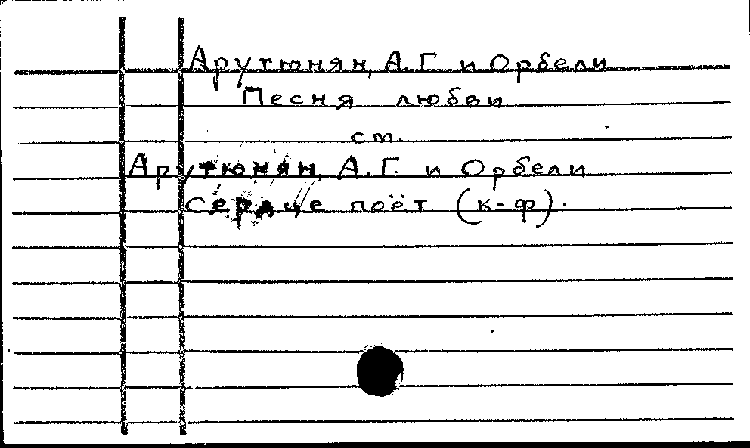 Арутюнян, А.Г. и Орбели
Песня любви
см.
Арутюнян, А.Г. и Орбели
Сердце поёт (к-ф).